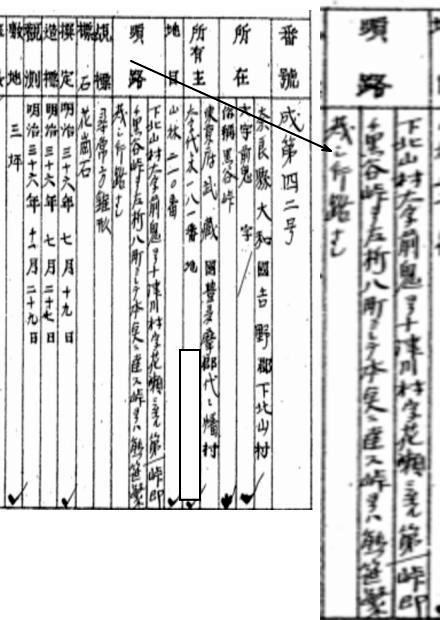 番號 成第四二号
所在 奈良縣大和國吉野郡下北山村
大字前鬼 字
俗稱黒谷峠
所有主 東京府武藏國豊多摩郡代々幡村
大字代々木一八一番地
地目 山林二一〇番
順路 下北山村大字前鬼ヨリ十津川村字花瀬ニ至ル第一峠即
チ黒谷峠ヨリ左折八町ニシテ本点ニ達ス峠ヨリハ熊笹繁
茂シ行路ナシ
覘標 尋常方錐形
標石 花崗石
撰定 明治三十六年七月十九日
造標 明治三十六年七月二十七日
觀測 明治三十六年十一月二十九日
敷地 三坪
順路
下北山村大字前鬼ヨリ十津川村字花瀬ニ至ル第一峠即
チ黒谷峠ヨリ左折八町ニシテ本点ニ達ス峠ヨリハ熊笹繁
茂シ行路ナシ